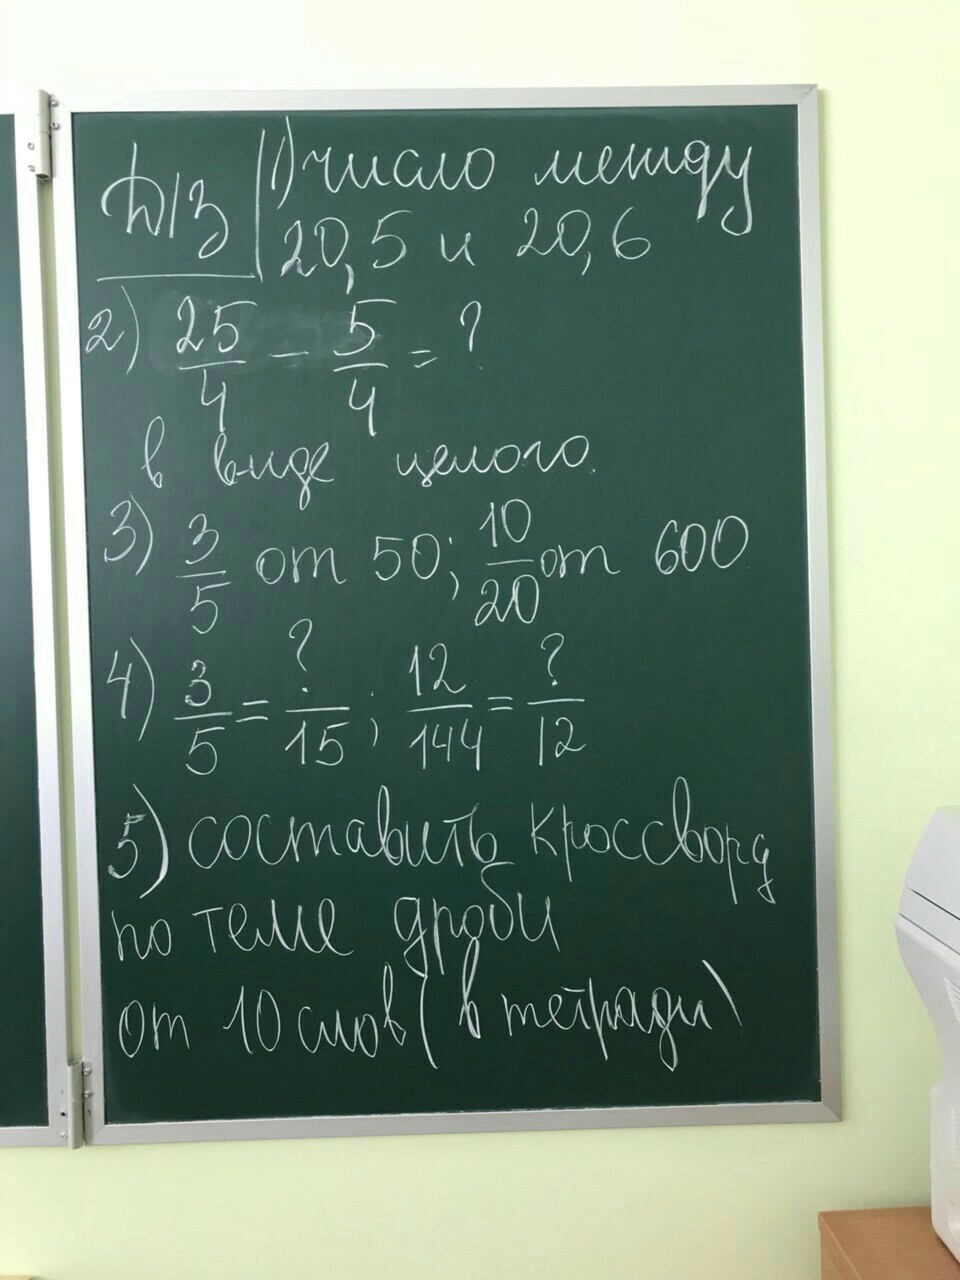 Д/З 1) число между
20,5 и 20,6
2) 25/4 - 5/4 = ?
в виде целого.
3) 3/5 от 50; 10/20 от 600
4) 3/5 = ?/15; 12/144 = ?/12
5) составить кроссворд
по теме дроби
от 10 слов (в тетради)